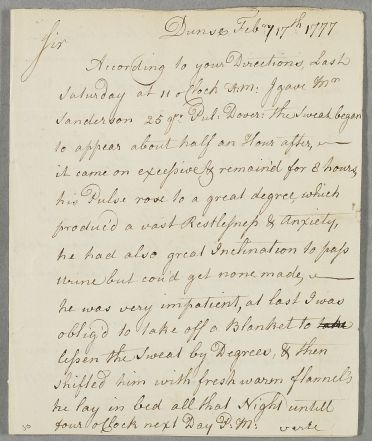 Duns Feb:ry 17th 1777
Sir
According to your Directions, Last
Saturday at 11 o Clock A:M: I gave Mr
Sanderson 25 gr: Pul: Dover: the Sweat began
to appear about half an Hour after, —
it came on excessive & remain'd for 8 hours,
his Pulse rose to a great degree, which
produc'd a vast Restlessness & Anxiety,
he had also great Inclination to pass
Urine but cou'd get none made, —
he was very impatient, at last I was
oblig'd to take off a Blanket to
lessen the Sweat by Degrees, & then
shifted him with fresh warm flannels
he lay in bed all that Night untill
four o Clock next Day P:M:
verte